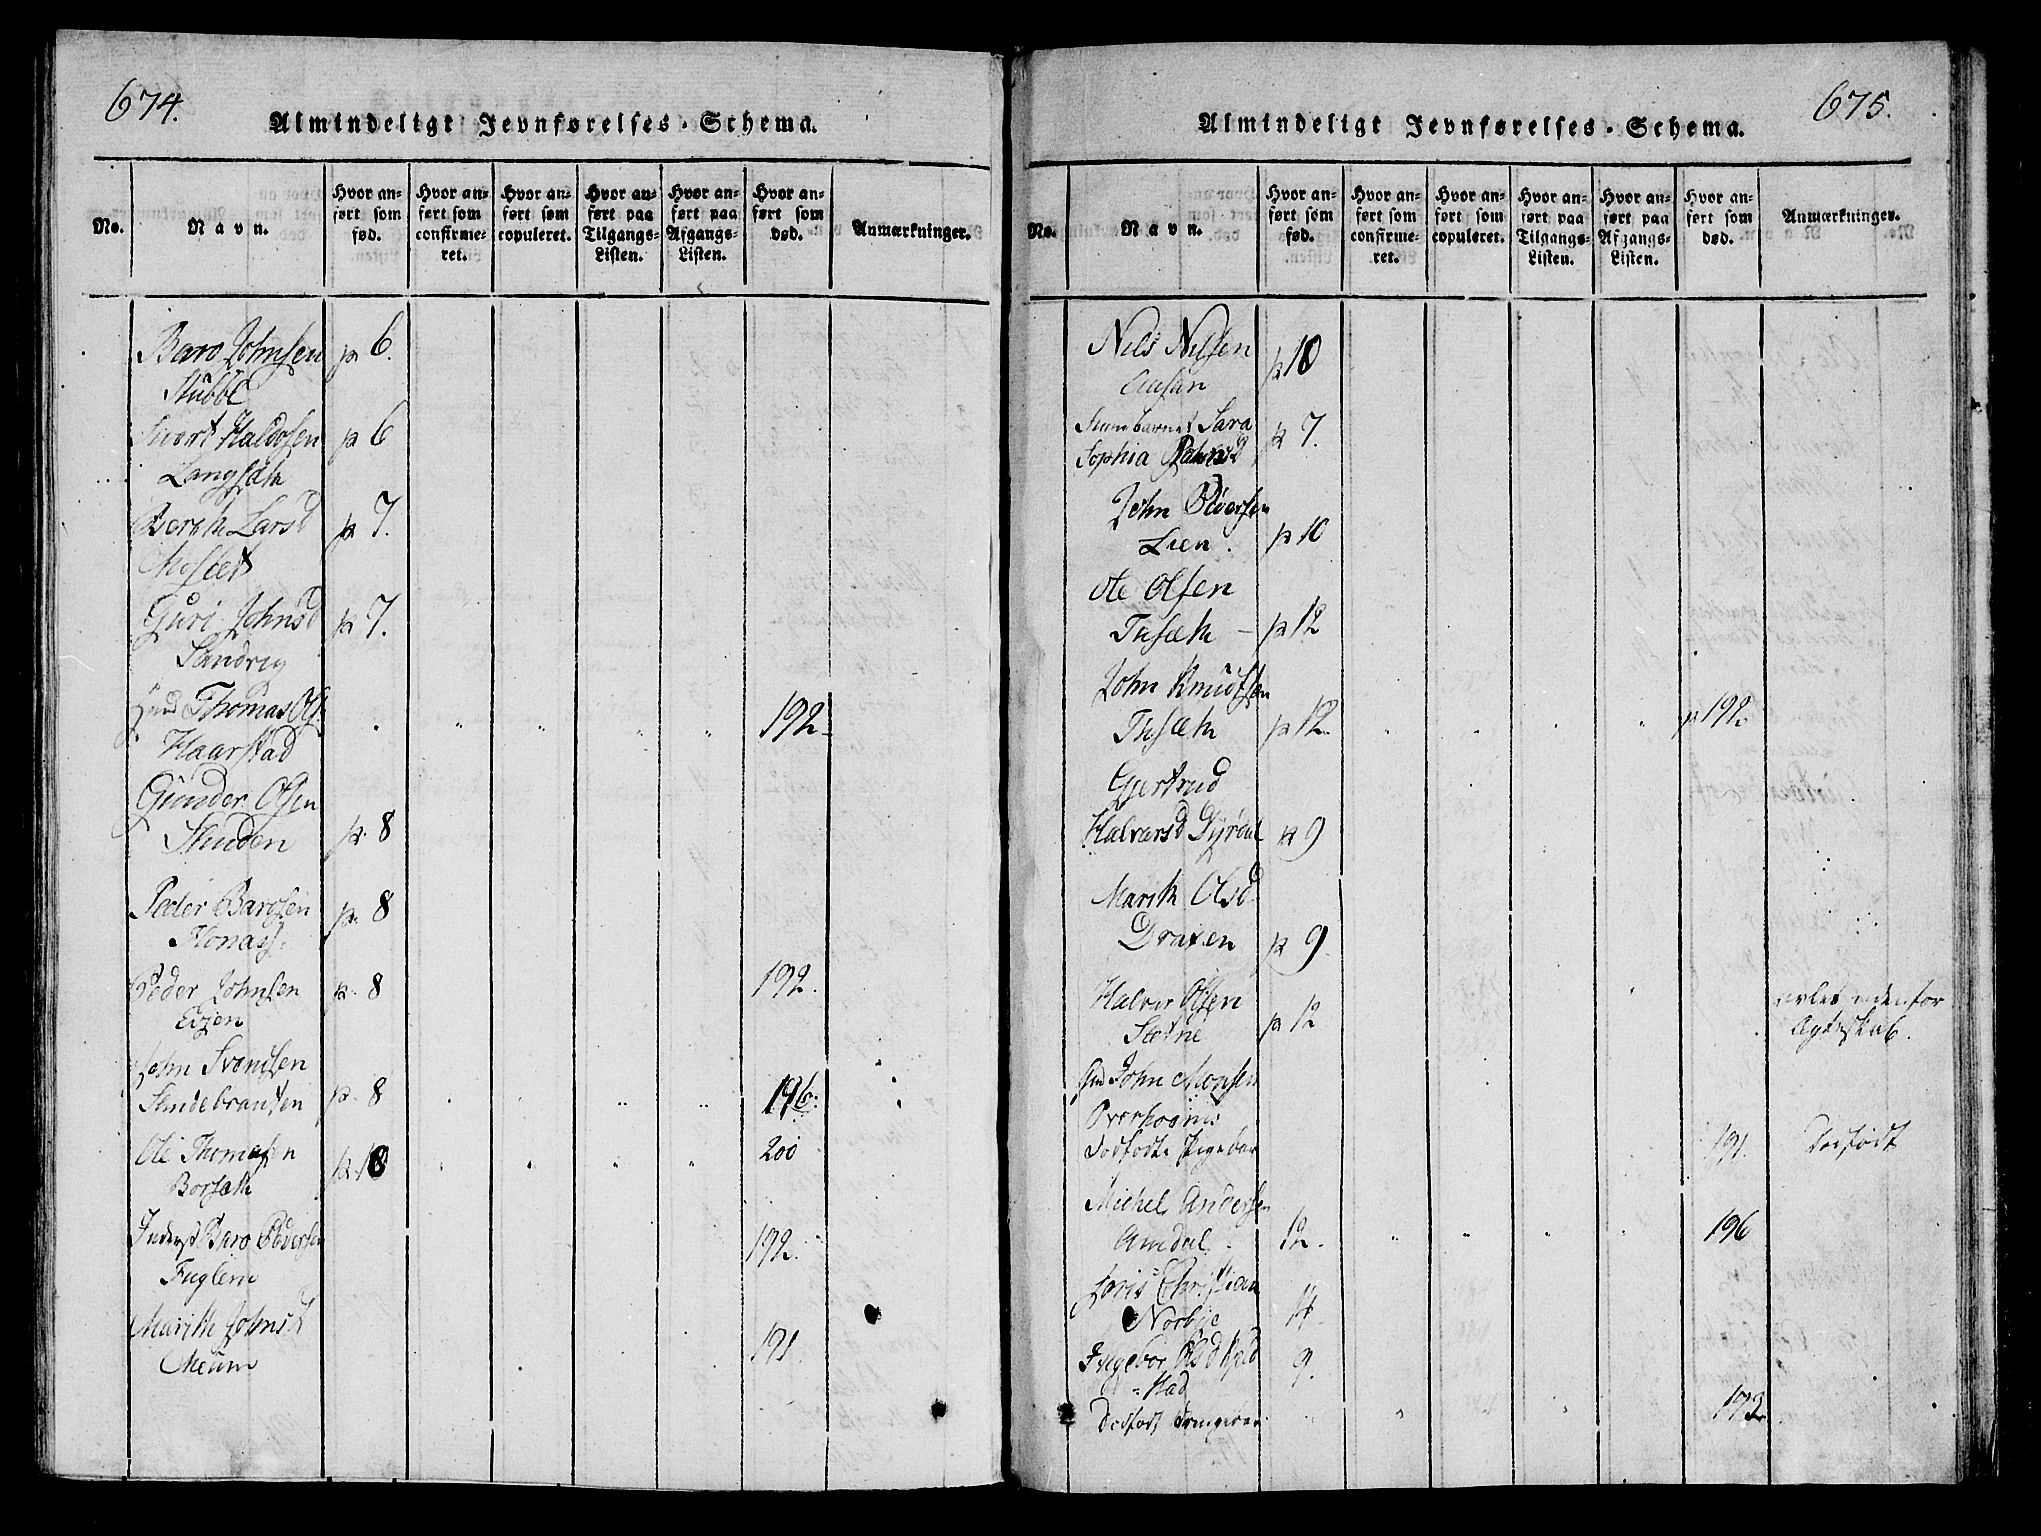 674.
Almindeligt Jevnførelses-Schema.
No.
Navn.
Hvor anført som fød.
Hvor anført som confirmeret.
Hvor anført som copuleret.
Hvor anført paa Tilgangs-Listen.
Hvor anført paa Afgangs-Listen.
Hvor anført som død.
Anmærkninger.
Baro Johnsen p 6.
Stubbe
Sivert Haldosen p 6
Langsæth
Bereth Larsd p 7.
Moslet
Guri Johnsd p 7.
Sandvig
Thomas Ols. 192
Haarstad
Gunder Olsen
Studen p. 8
Peder Barosen p. 8
Flonæs.
Peder Johnsen p. 8 192.
Evjen
John Svendsen
p. 8 196.
Ole Thomesen p. 10 200
Borsæth
Inderst Baro Pedersen 192.
Fuglem
Marith Johnsd 191.
Meum
675.
Almindeligt Jevnførelses-Schema.
No.
Navn.
Hvor anført som fød.
Hvor anført som confirmeret.
Hvor anført som copuleret.
Hvor anført paa Tilgangs-Listen.
Hvor anført paa Afgangs-Listen.
Hvor anført som død.
Anmærkninger.
Nils Nilsen p 10
Aasan
Sara p 7.
Sophia
John Pedersen
Lien. p 10
Ole Olsen
Tusæth p 12
John Knudsen
Tusæth p 12. p 192.
Gjertrud
Halvarsd Dyrdal p 9
Marith Olsd
Draxen p 9
Halvor Olsen avlet udenfor
Sætne p 12 Ægteskab.
John Monsen
Dødfødte Pigebar 191. Dødfødt
Michel Andersen
Amdal 12. 196
Christian
Norbye 14
Ingebor Olsd Kjeld 9.
=stad
Dødfødt Drengebar 193.